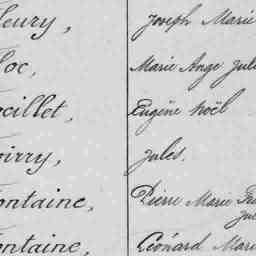 leury, Joseph Marie
loc, Marie Ange Jule
oeillet, Eugène Noël
oirry, Jules.
ontaine, Pierre Marie
Jul
ontaine, Léonard Marie